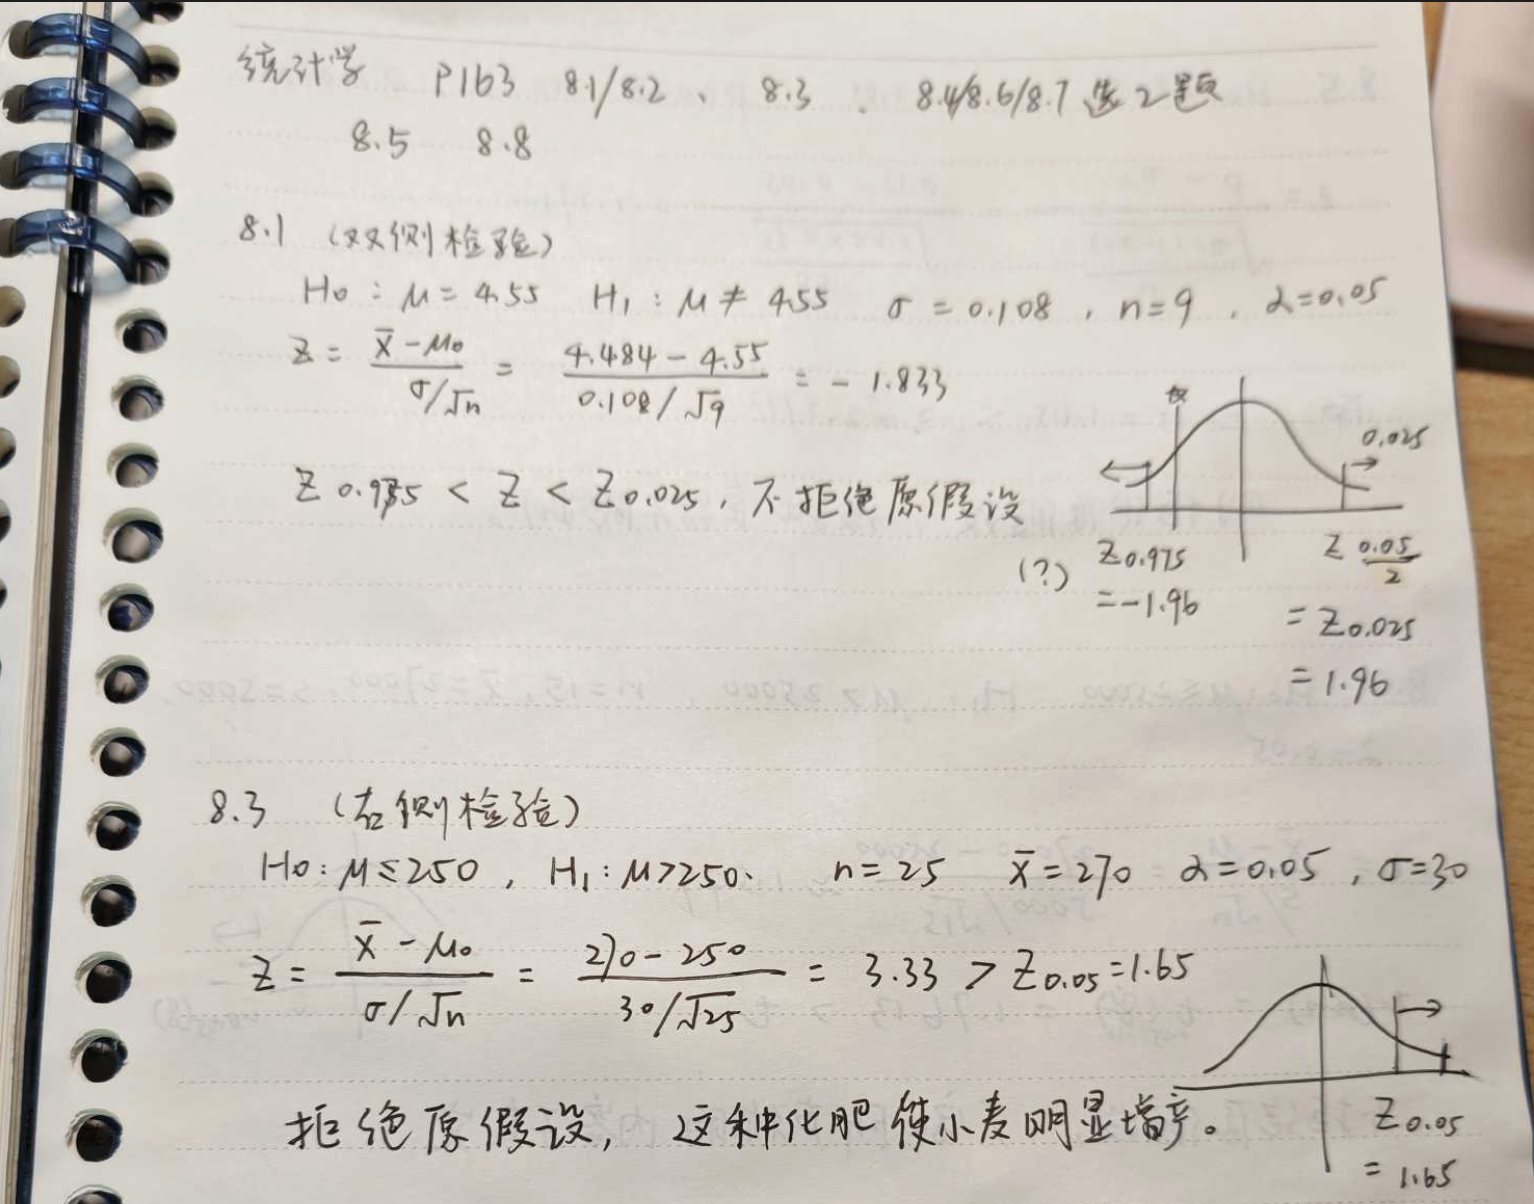 统计学 P163 8.1/8.2、 8.3 . 8.4/8.6/8.7 选2题
8.5 8.8
8.1 (双侧检验)
H₀: μ = 4.55 H₁: μ ≠ 4.55 σ = 0.108 , n=9 , α=0.05
Z = (x̄ - μ₀)/(σ/√n) = (4.484 - 4.55)/(0.108/√9) = - 1.833
0.025
Z 0.975 < Z < Z 0.025, 不拒绝原假设
(?)
Z 0.975
= -1.96
Z 0.05/2
= Z 0.025
= 1.96
8.3 (右侧检验)
H₀: μ ≤ 250 , H₁: μ > 250. n = 25 x̄ = 270 α = 0.05 , σ=30
Z = (x̄ - μ₀)/(σ/√n) = (270 - 250)/(30/√25) = 3.33 > Z 0.05 = 1.65
拒绝原假设, 这种化肥使小麦明显增产。
Z 0.05
= 1.65